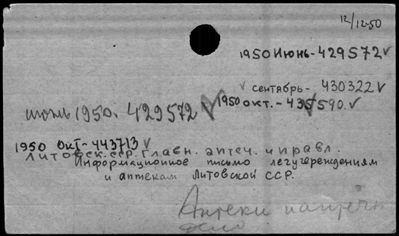 12/12-50
1950 Июнь-429572 ✓
✓ сентябрь- 430322 ✓
1950 окт.- 435590. ✓
июнь 1950. 429572 ✓
1950 Окт-443713 ✓
Литовск. ССР. Главн. аптеч. управл.
Информационное письмо лечучреждениям
и аптекам Литовской ССР.
Аптеки и аптечн.
дело